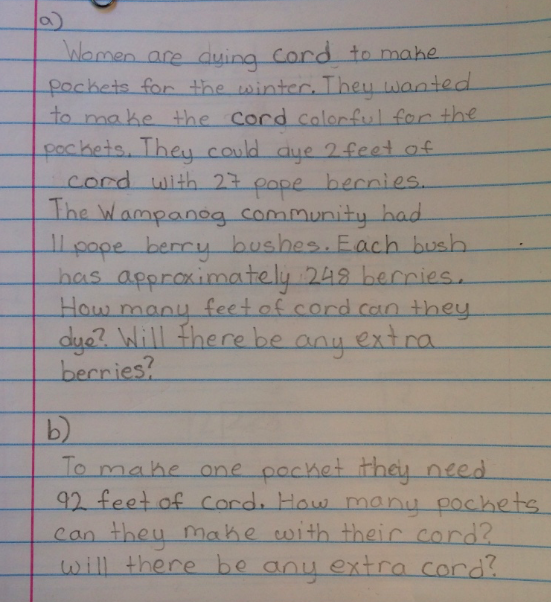 a)
Women are dying cord to make
pockets for the winter. They wanted
to make the cord colorful for the
pockets. They could dye 2 feet of
cord with 27 pope berries.
The Wampanog community had
11 pope berry bushes. Each bush
has approximately 248 berries.
How many feet of cord can they
dye? Will there be any extra
berries?
b)
To make one pocket they need
92 feet of cord. How many pockets
can they make with their cord?
will there be any extra cord?